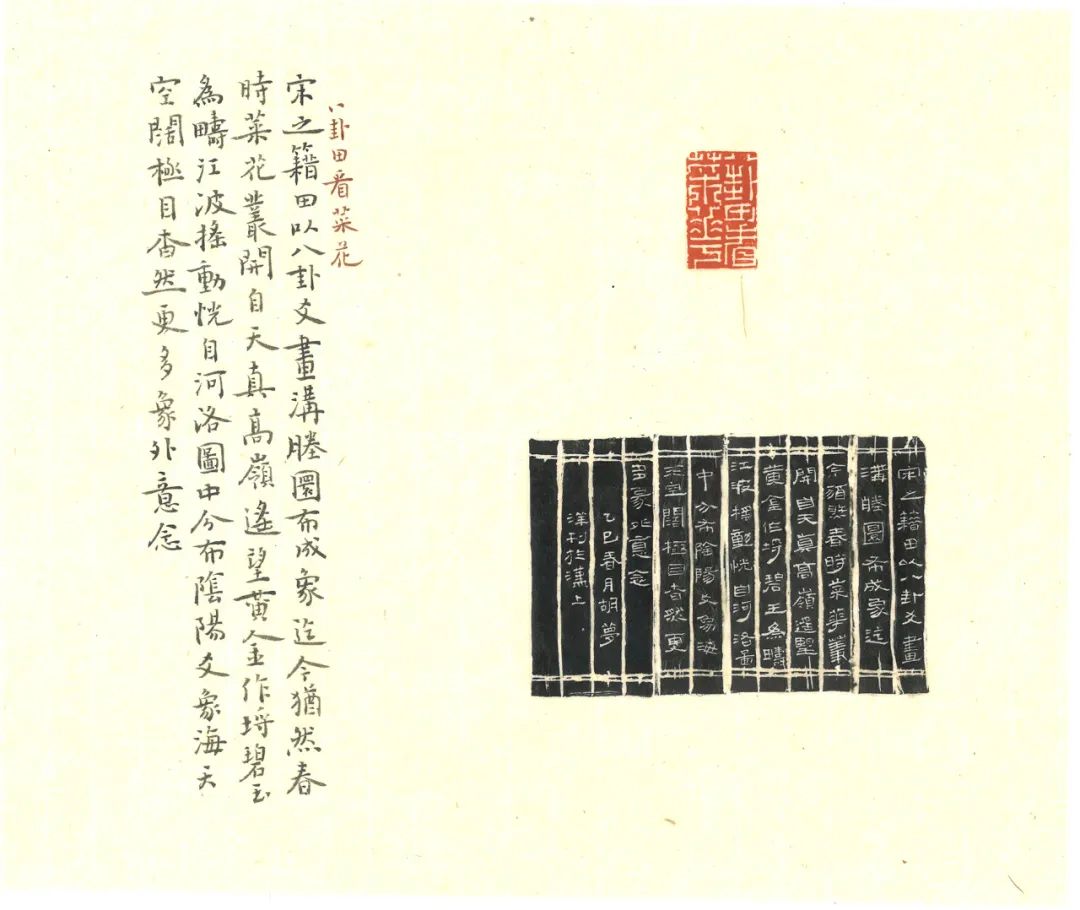 八卦田看
菜花
宋之籍田以八卦爻畫
溝塍圜布成象迄
今猶然春時菜華叢
開自天真高嶺遙望
黃金作埒碧玉為疇
江波搖動恍自河洛圖
中分布陰陽爻象海
天空闊極目杳然更
多象外意念
乙巳春月胡夢
刊於上
八卦田看菜花
宋之籍田以八卦爻畫溝塍圜布成象迄今猶然春
時菜花叢開自天真高嶺遙望黃金作埒碧玉
為疇江波搖動恍自河洛圖中分布陰陽爻象海天
空闊極目杳然更多象外意念